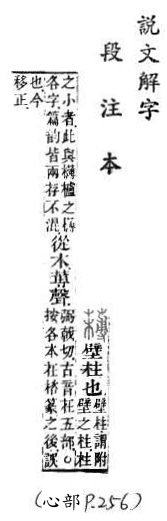 說文解字
段注本
壁柱也 壁柱謂附
壁之柱柱
之小者此與欂櫨之欂
各字篇韵皆兩存不混
從木 聲
弼戟切古音在五部。
按各本在榰篆之後誤
也今
移正
(心部P.256)